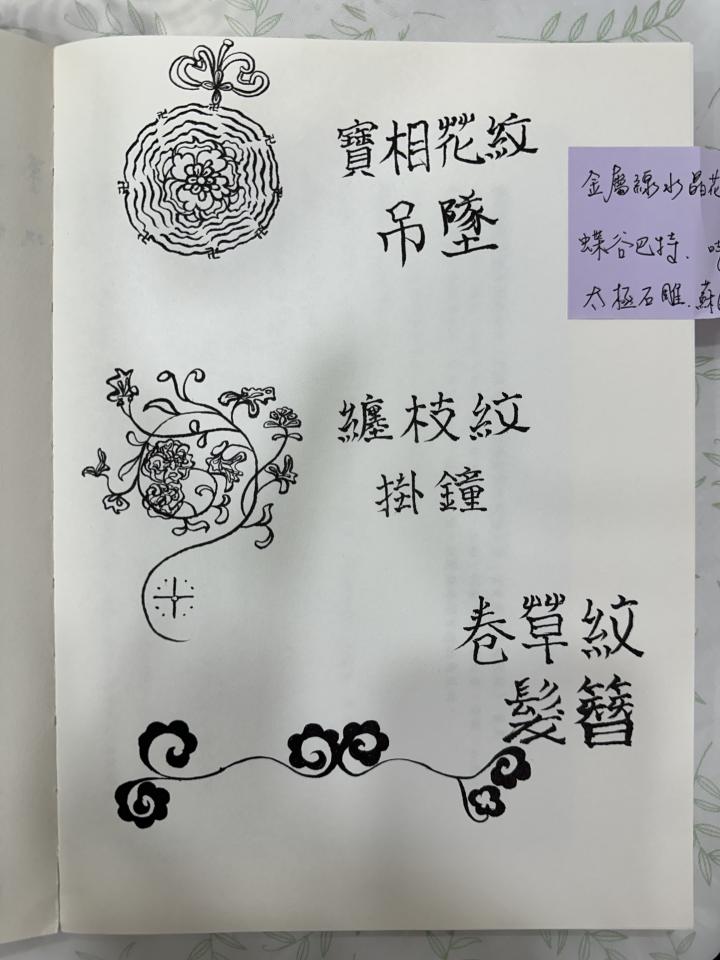 寶相花紋
吊墜
金屬線水晶花
蝶谷巴特.
太極石雕.蘇
纏枝紋
掛鐘
卷草紋
髮簪